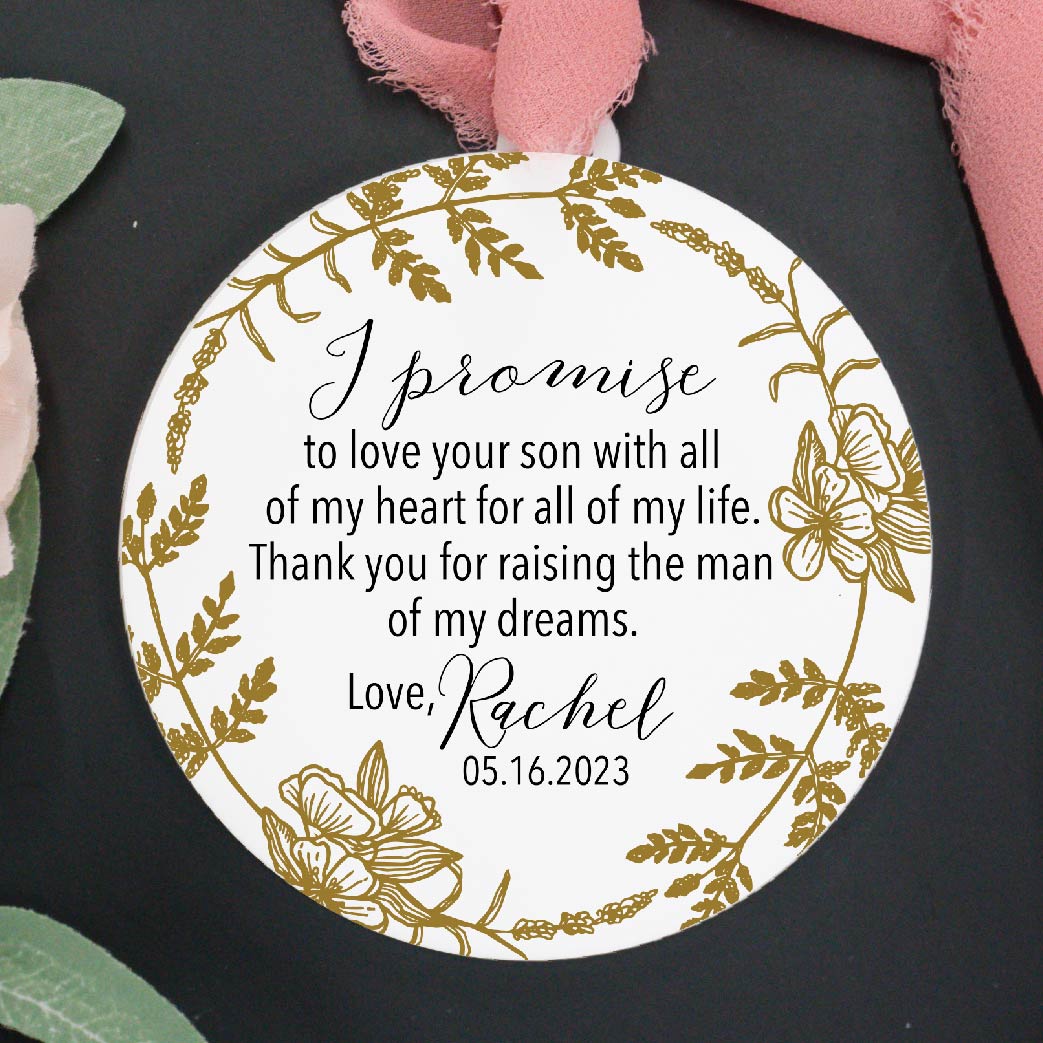 I promise
to love your son with all
of my heart for all of my life.
Thank you for raising the man
of my dreams.
Love, Rachel
05.16.2023